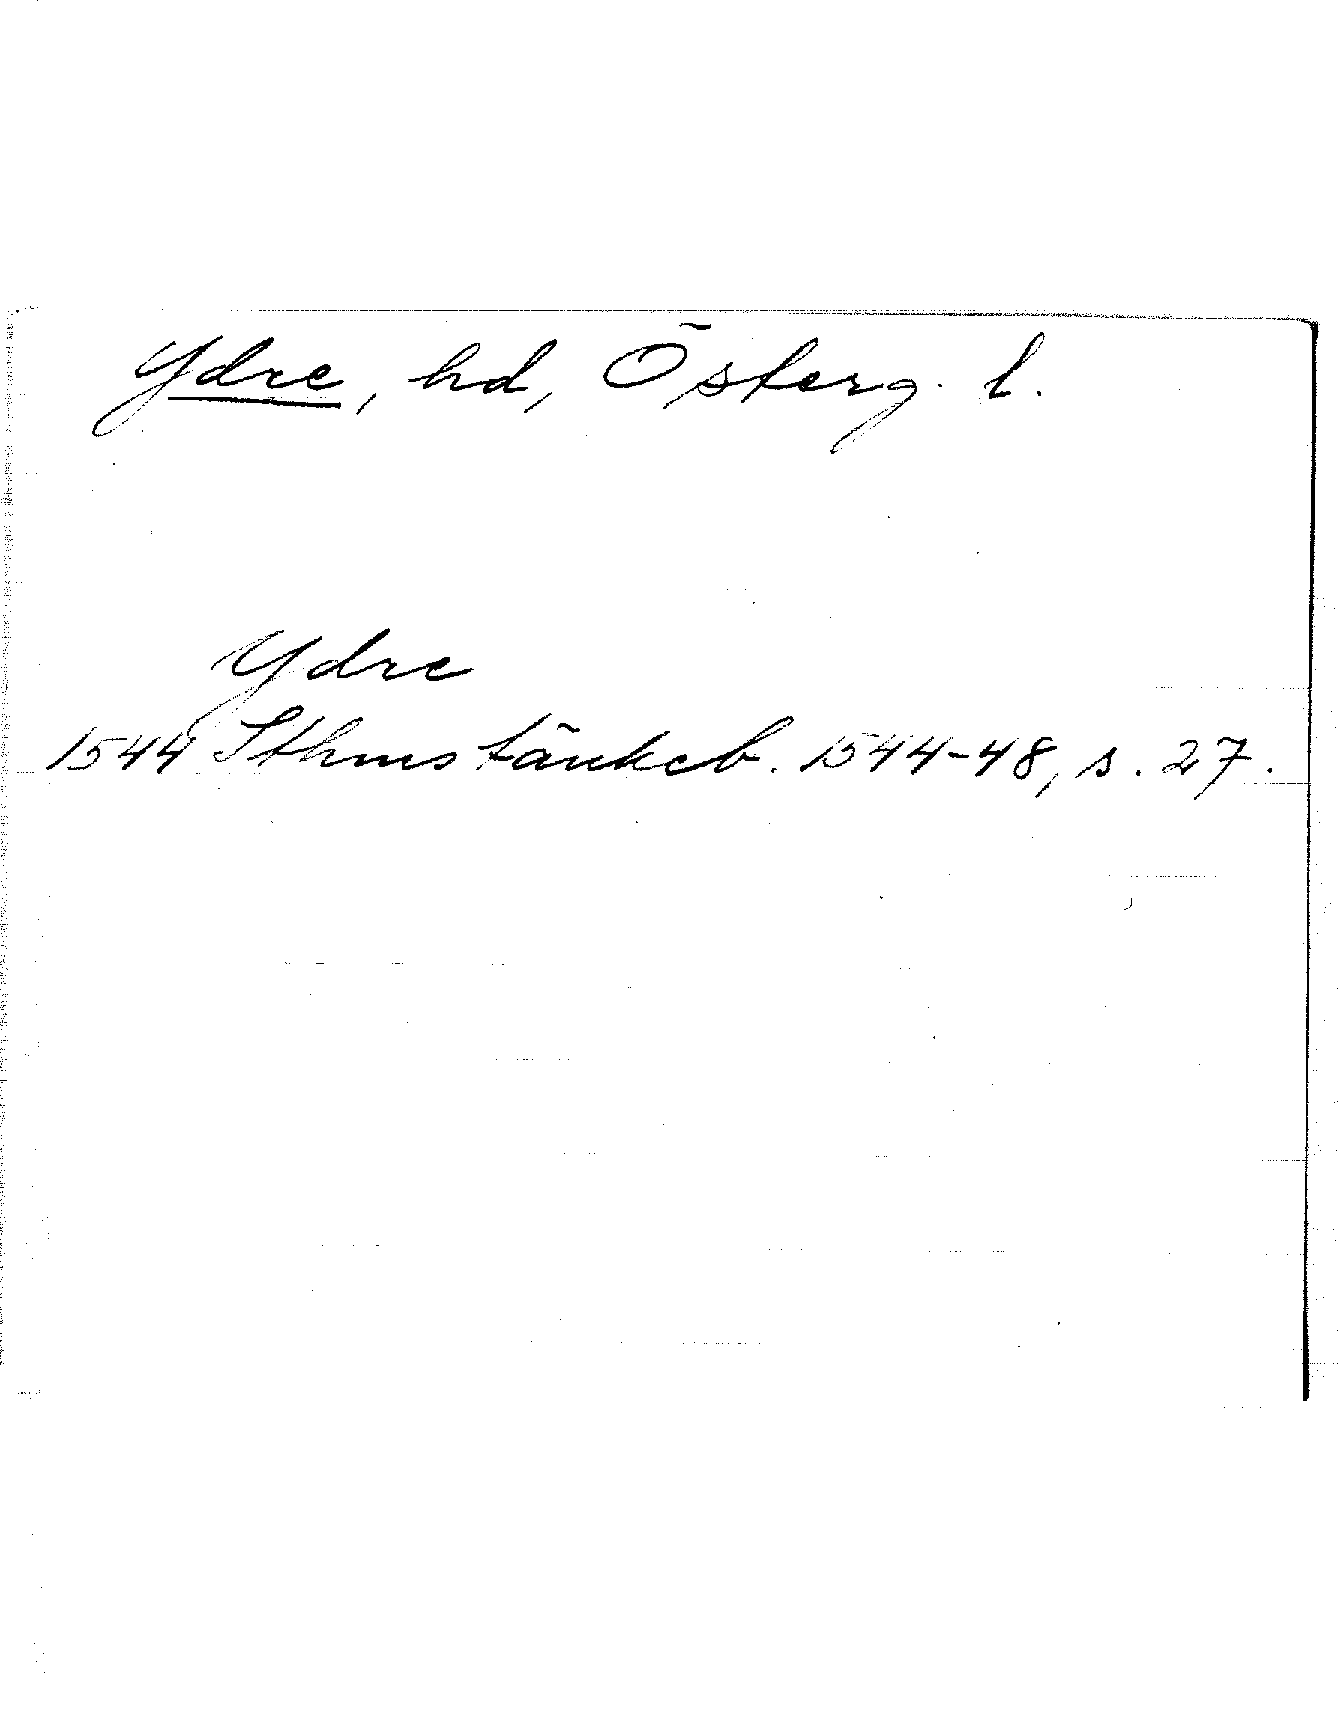 Ydre, hd, Österg. l.
Ydre
1544 Sthmstänkeb. 1544-48, s. 27.